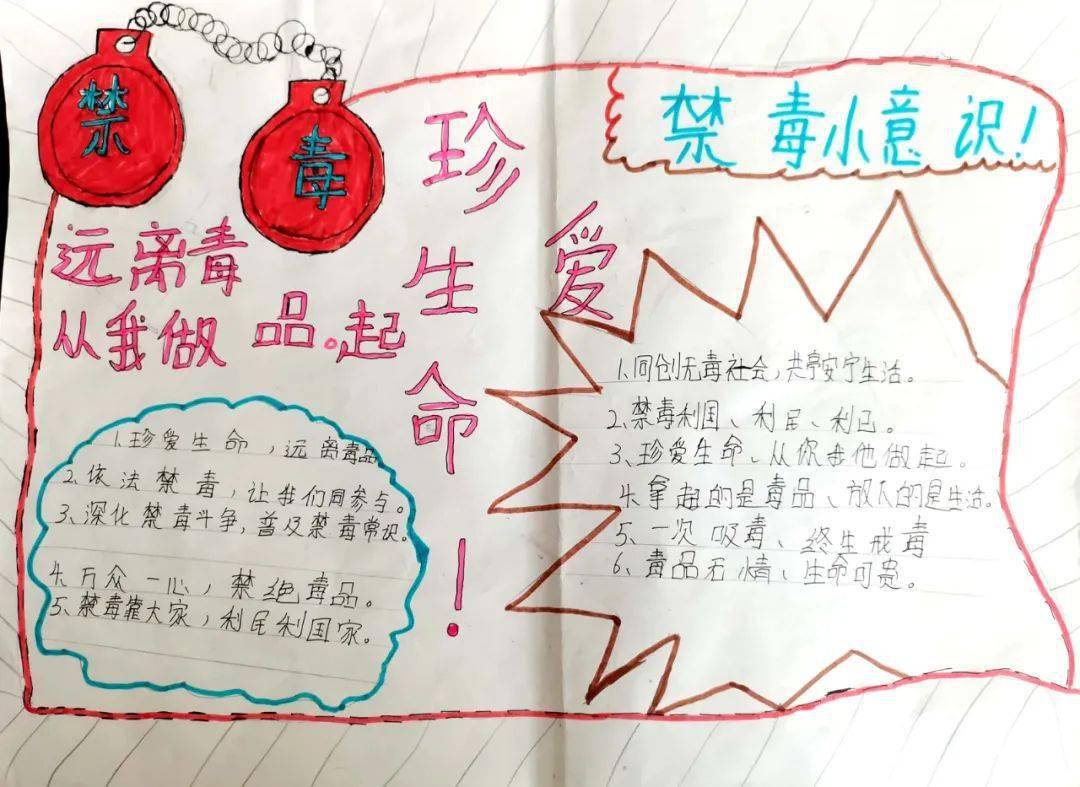 禁
毒
远离毒
从我做品。起
珍
爱
生
命
！
禁毒小意识！
1.珍爱生命，远离毒品
2.依法禁毒，让我们同参与。
3、深化禁毒斗争，普及禁毒常识。
4.万众一心，禁绝毒品。
5、禁毒靠大家，利民利国家。
1.同创无毒社会，共享安宁生活。
2、禁毒利国、利民、利己。
3、珍爱生命、从你我他做起。
4.拿起的是毒品、放下的是生活。
5、一次吸毒、终生戒毒
6、毒品无情、生命可贵。